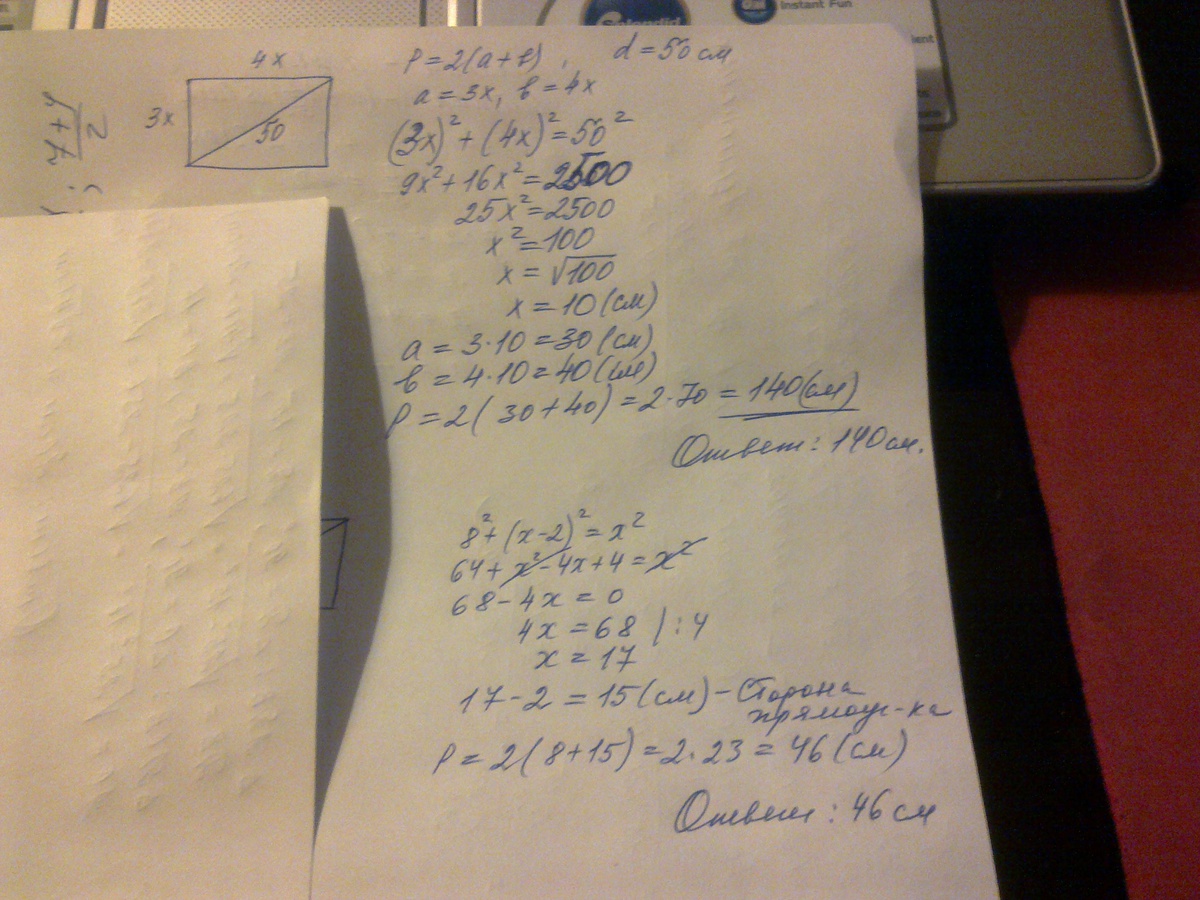 Splendid
Instant Fun
4x
3x
50
7+y
2
P=2(a+b), d=50 см
a=3x, b=4x
(3x)²+(4x)²=50²
9x²+16x²=2500
25x²=2500
x²=100
x=√100
x=10(см)
a=3·10=30(см)
b=4·10=40(см)
P=2(30+40)=2·70=140(см)
Ответ: 140см.
8²+(x-2)²=x²
64+x²-4x+4=x²
68-4x=0
4x=68 |:4
x=17
17-2=15(см)-сторона
прямоуг-ка
P=2(8+15)=2·23=46(см)
Ответ: 46см